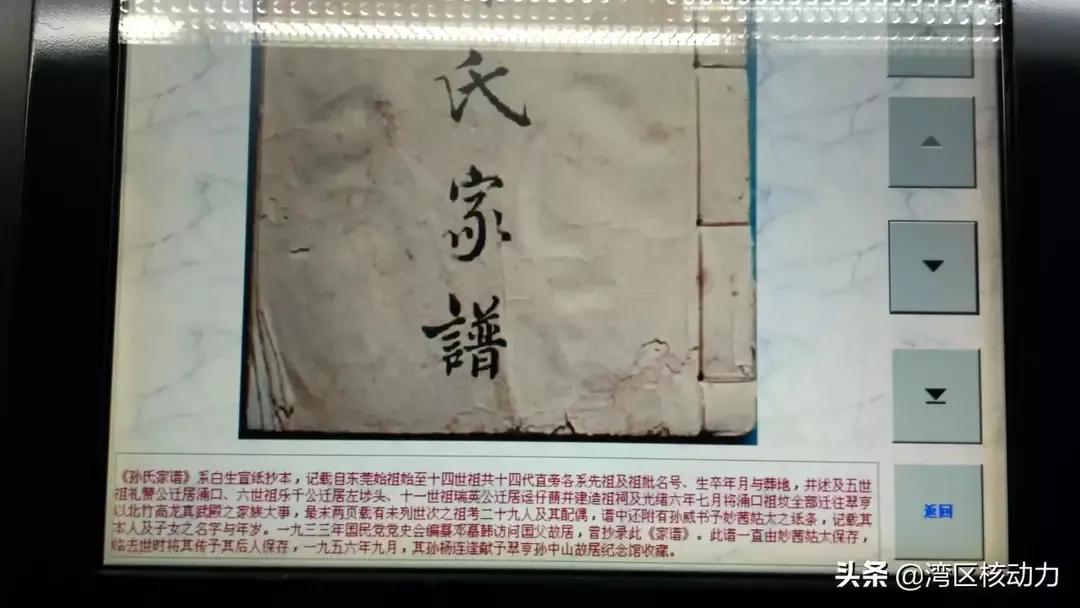 氏
家
譜
《孙氏家谱》系白生宣纸抄本，记载自东莞始祖始至十四世祖共十四代直旁各系先祖及祖妣名号、生卒年月与葬地，并述及五世
祖礼赞公迁居涌口、六世祖乐千公迁居左埗头、十一世祖瑞英公迁居迳仔蓢并建造祖祠及光绪六年七月将涌口祖坟全部迁往翠亨
以北竹高龙真武殿之家族大事，最末两页载有未列世次之祖考二十九人及其配偶，谱中还附有孙威书予妙茜姑太之纸条，记载其
本人及子女之名字与年岁。一九三三年国民党党史会编纂邓慕韩访问国父故居，曾抄录此《家谱》。此谱一直由妙茜姑太保存，
临去世时将其传予其后人保存，一九五六年九月，其孙杨连逢献予翠亨孙中山故居纪念馆收藏。
返回
头条 @湾区核动力